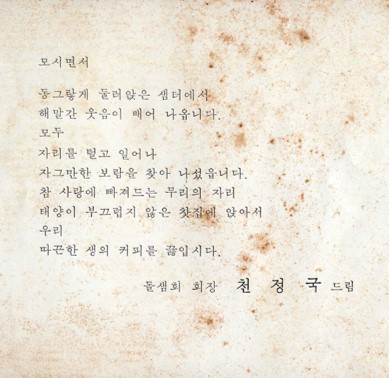 모시면서
동그랗게 둘러앉은 샘터에서
해맑간 웃음이 배어 나옵니다.
모두
자리를 털고 일어나
자그만한 보람을 찾아 나섰읍니다.
참 사랑에 빠져드는 무리의 자리
태양이 부끄럽지 않은 찻집에 앉아서
우리
따끈한 생의 커피를 끓입시다.
돌샘회 회장 천 정 국 드림